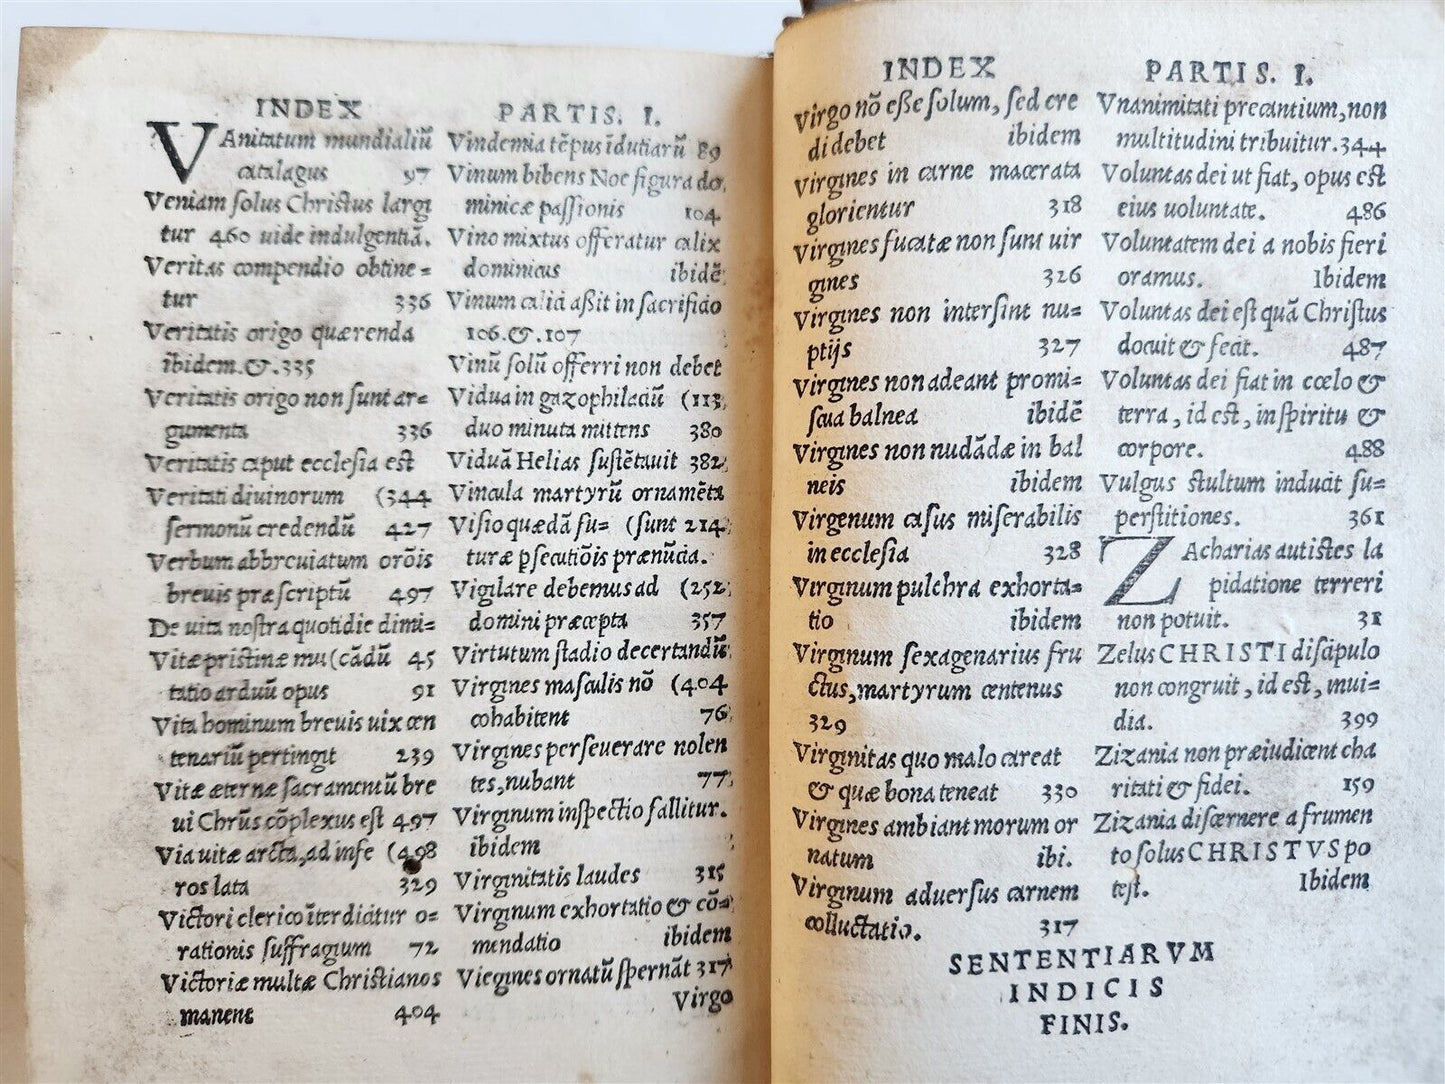 INDEX PARTIS. I.
VAnitatum mundialiũ
catalagus 97
Veniam solus Christus largi
tur 460 uide indulgentiã.
Veritas compendio obtine=
tur 336
Veritatis origo quærenda
ibidem.&.335
Veritatis origo non sunt ar=
gumenta 336
Veritatis caput ecclesia est
Veritati diuinorum (344
sermonũ credendũ 427
Verbum abbreuiatum orõis
breuis præscriptũ 497
De uita nostra quotidie dimi=
Vitæ pristinæ mu(cãdũ 45
tatio arduũ opus 91
Vita hominum breuis uix cen
tenariũ pertingit 239
Vitæ æternæ sacramentũ bre
ui Chrũs cõplexus est 497
Via uitæ arcta, ad infe (498
ros lata 329
Victori clerico ĩterdicitur o=
rationis suffragium 72
Victoriæ multæ Christianos
manent 404
Vindemia tẽpus ĩdutiarũ 89
Vinum bibens Noe figura do,
minicæ passionis 104
Vino mixtus offeratur calix
dominicus ibidẽ
Vinum calici aßit in sacrificio
106.&.107
Vinũ solũ offerri non debet
Vidua in gazophilaciũ (113
duo minuta mittens 380
Viduã Helias sustẽtauit 382
Vincula martyrũ ornamẽta
Visio quædã fu= (sunt 214
turæ psecutiõis prænũcia.
Vigilare debemus ad (252
domini præcepta 357
Virtutum stadio decertandũ
Virgines masculis nõ (404
cohabitent 76
Virgines perseuerare nolen
tes, nubant 77
Virginum inspectio fallitur.
ibidem
Virginitatis laudes 315
Virginum exhortatio & cõ=
mendatio ibidem
Viegines ornatũ spernãt 317
Virgo
INDEX PARTIS. I.
Virgo nõ eße solum, sed cre
di debet ibidem
Virgines in carne macerata
glorientur 318
Virgines fucatæ non sunt uir
gines 326
Virgines non intersint nu=
ptijs 327
Virgines non adeant promi=
scua balnea ibidẽ
Virgines non nudãdæ in bal
neis ibidem
Virgenum casus miserabilis
in ecclesia 328
Virginum pulchra exhorta=
tio ibidem
Virginum sexagenarius fru
ctus, martyrum centenus
329
Virginitas quo malo careat
& quæ bona teneat 330
Virgines ambiant morum or
natum ibi.
Virginum aduersus carnem
colluctatio. 317
Vnanimitati precantium, non
multitudini tribuitur. 344
Voluntas dei ut fiat, opus est
eius uoluntate. 486
Voluntatem dei a nobis fieri
oramus. Ibidem
Voluntas dei est quã Christus
docuit & fecit. 487
Voluntas dei fiat in cœlo &
terra, id est, in spiritu &
corpore. 488
Vulgus stultum inducit su=
perstitiones. 361
ZAcharias autistes la
pidatione terreri
non potuit. 31
Zelus CHRISTI discipulo
non congruit, id est, inui=
dia. 399
Zizania non præiudicent cha
ritati & fidei. 159
Zizania discernere a frumen
to solus CHRISTVS po
test. Ibidem
SENTENTIARVM
INDICIS
FINIS.